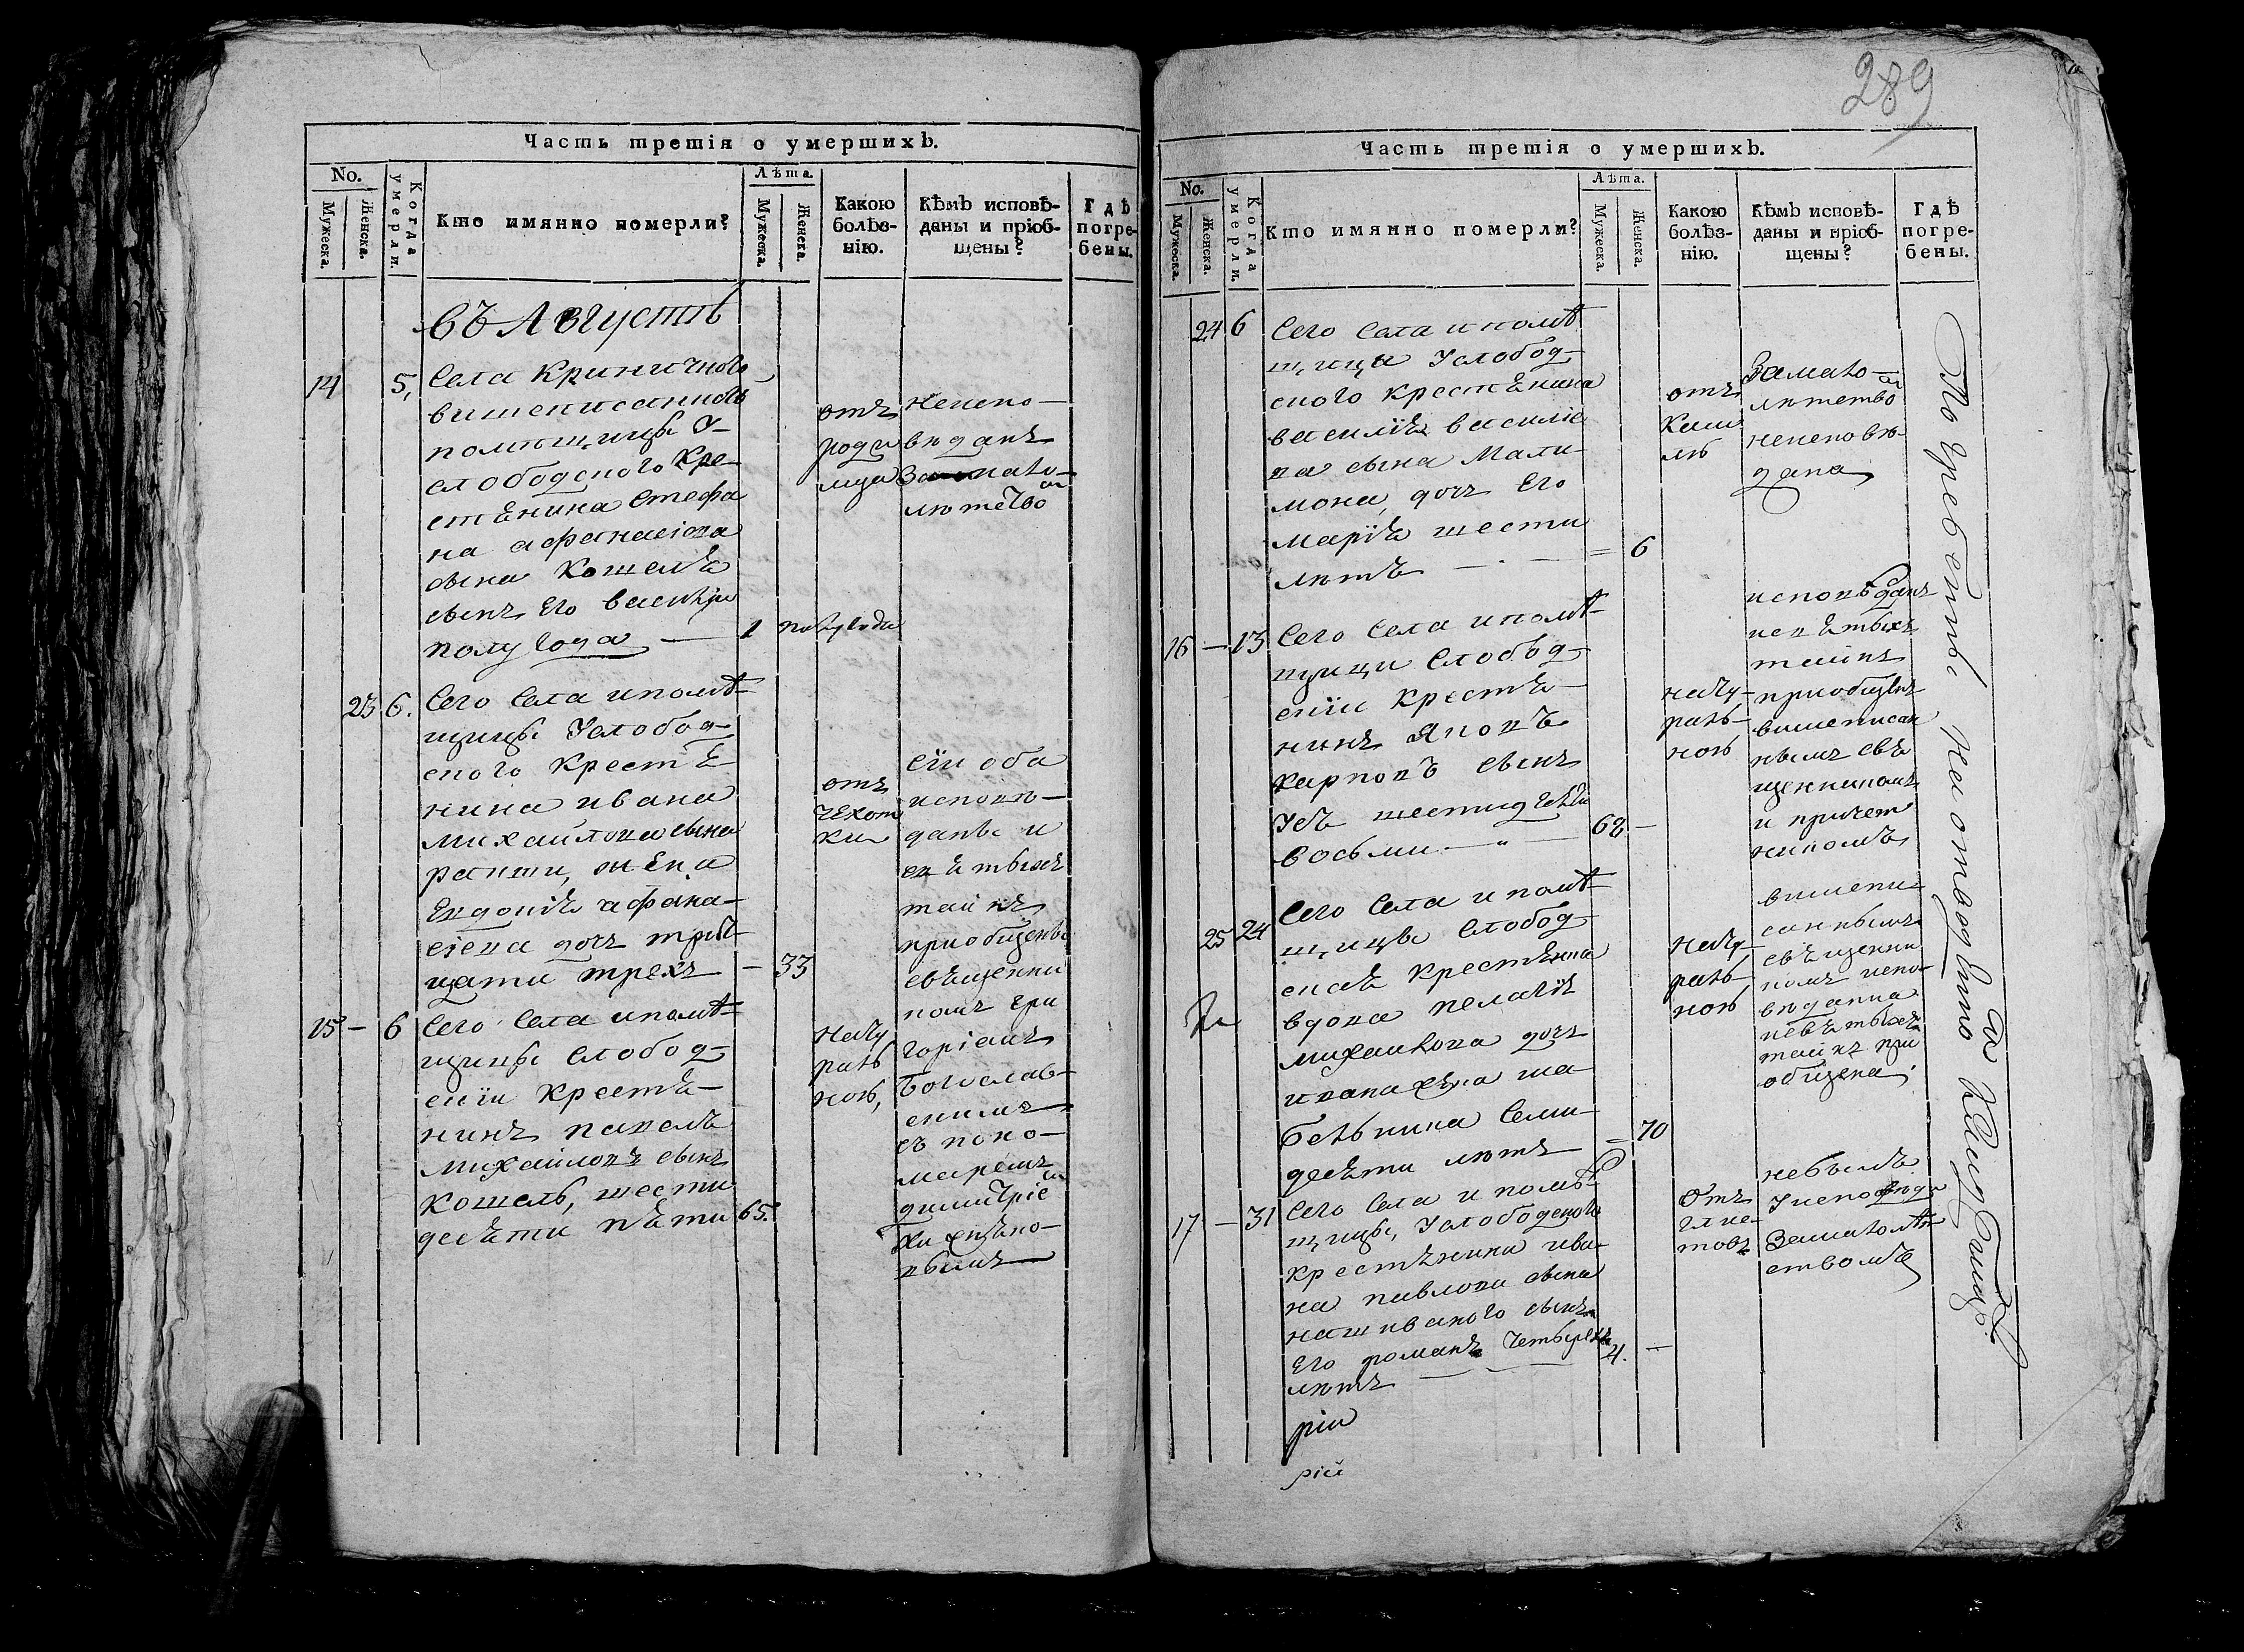 289
Часть третія о умершихъ.
No.
Мужеска.
Женска.
Когда умерли.
Кто имянно померли?
Лѣта.
Мужеска.
Женска.
Какою болѣз-
нію.
Кѣмъ исповѣ-
даны и пріоб-
щены?
Гдѣ
погре-
бены.
въ Августѣ
14 5,
Села Криничного
вишеписанной
помѣщицы У-
слободского Кре-
стѣнина Стефа
на афанасіова
сына Кошелѣ
сынъ его василій
полугода — 1 полугода
отъ
роди
мца
неиспо-
вѣданъ
за мало-
лѣтство
23 6.
Сего Села и помѣ-
щицы Услобод-
ского Крестѣ-
нина ивана
михайлова сына
жена
Евдокіѣ афана-
сіева дочь трит-
цати трехъ — 33
отъ
чехот
ки
сіи оба
исповѣ-
даны и
свѣтыхъ
таинъ
приобщены
свѣщенни
комъ гри
горіемъ
Богослав-
скимъ
съ поно-
маремъ
димитріе
мъ
15 — 6
Сего Села и помѣ-
щицы Слобод-
скіи Крестѣ-
нинъ павелъ
михайловъ сынъ
Кошель, шести
десѣти пѣти 65.
нату
раль
ною,
Часть третія о умершихъ.
No.
Мужеска.
Женска.
Когда умерли.
Кто имянно померли?
Лѣта.
Мужеска.
Женска.
Какою болѣз-
нію.
Кѣмъ исповѣ-
даны и пріоб-
щены?
Гдѣ
погре-
бены.
24 6
Сего Села и помѣ-
щици Услобод-
ского крестѣнина
василіѣ василіе
ва сына Мали-
мона, дочь его
маріѣ шести
лѣтъ — = 6
отъ
каш
лю
За мало-
лѣтство
неисповѣ-
дана
16 — 13
Сего Села и помѣ-
щици Слобод-
скіи Крестѣ-
нинъ Яковъ
Карповъ сынъ
шестидесѣти
восьми — 68 —
нату-
раль-
ною
исповѣданъ
и свѣтыхъ
таинъ
приобщенъ
вишеписан
нымъ свѣ
щенникомъ
и причет
никомъ
25 24
Сего Села и помѣ-
щицы Слобод-
скаѣ Крестѣнка
вдова пелагіѣ
михайлова дочь
ивана жена
Семи-
десѣти лѣтъ = 70
нату-
раль-
ною
вишепи-
саннымъ
свѣщенни
комъ испо-
вѣданна
и свѣтыхъ
таинъ при
общена.
17 — 31
Сего Села и помѣ-
щицы, Услободского
Крестѣнина ива-
на павлова сына
сынъ
его романъ четырехъ
лѣтъ — 4. —
отъ
глис-
товъ
небылъ
Уисповѣди
За малолѣт
ствомъ
На отводномъ Кладбищѣ
рій
рій